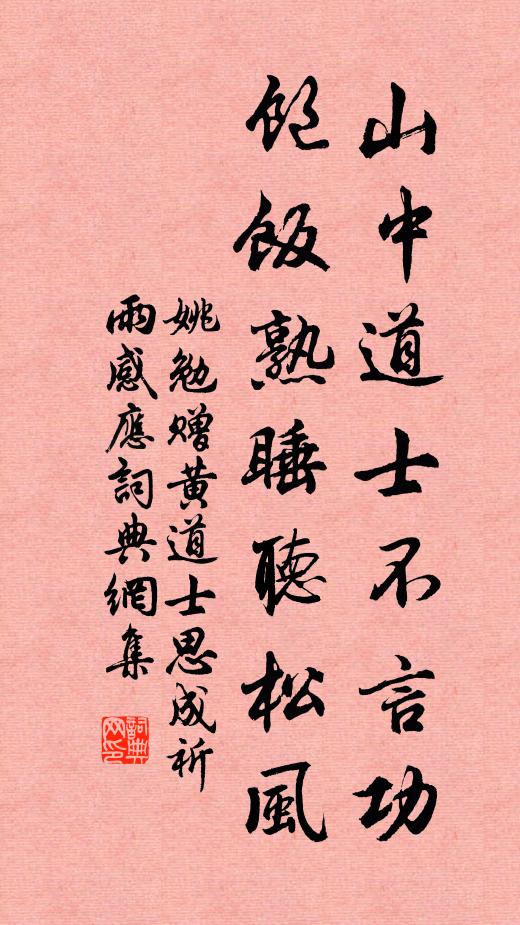 山中道士不言功
飽飯熟睡聽松風
姚勉贈黄道士思成祈
雨感應詞典網集
詞典網印